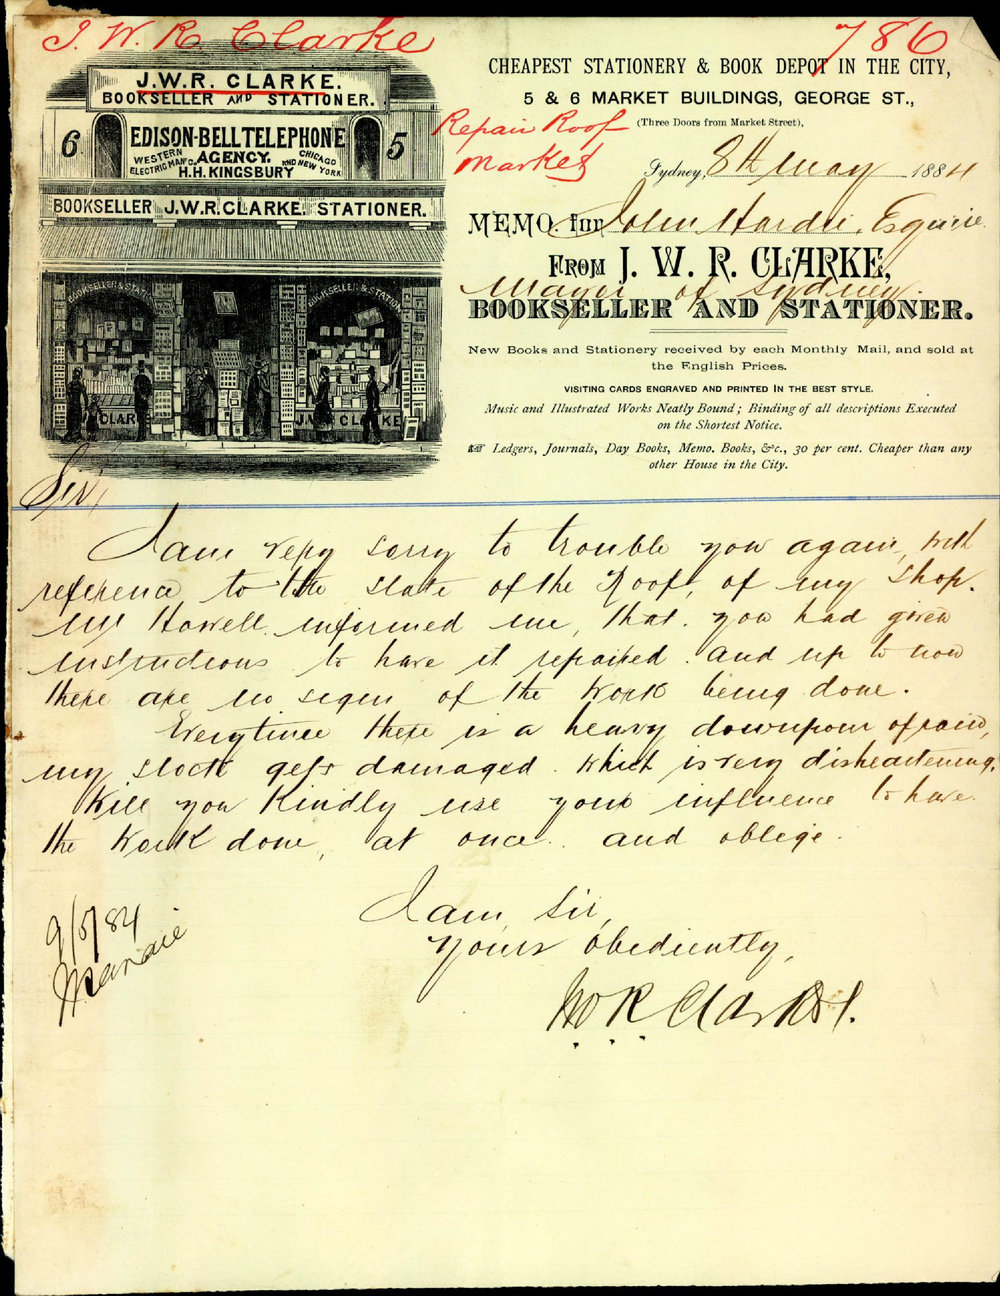 J. W. R. Clarke
786
J.W.R. CLARKE.
BOOKSELLER AND STATIONER.
6
EDISON-BELL TELEPHONE
WESTERN ELECTRIC MAN'G. Co. AGENCY. CHICAGO AND NEW YORK
H.H. KINGSBURY
5
BOOKSELLER J.W.R. CLARKE. STATIONER.
BOOKSELLER & STATI
BOOKSELLER & STATIO
CLAR
CLARKE
CHEAPEST STATIONERY & BOOK DEPOT IN THE CITY,
5 & 6 MARKET BUILDINGS, GEORGE ST.,
(Three Doors from Market Street),
Repair Roof
Market
Sydney, 8th May 1884
MEMO. for John Hardie, Esquire
FROM J. W. R. CLARKE,
Mayor of Sydney.
BOOKSELLER AND STATIONER.
New Books and Stationery received by each Monthly Mail, and sold at
the English Prices.
VISITING CARDS ENGRAVED AND PRINTED IN THE BEST STYLE.
Music and Illustrated Works Neatly Bound; Binding of all descriptions Executed
on the Shortest Notice.
☞ Ledgers, Journals, Day Books, Memo. Books, &c., 30 per cent. Cheaper than any
other House in the City.
Sir,
I am very sorry to trouble you again, with
reference to the state of the Roof, of my shop.
Mr Howell informed me, that you had given
instructions to have it repaired. and up to now
there are no signs of the work being done.
Everytime there is a heavy downpour of rain,
my stock gets damaged. which is very disheartening.
Will you kindly use your influence to have
the work done, at once. and oblige.
I am, Sir,
Yours obediently,
JWR Clarke
9/5/84